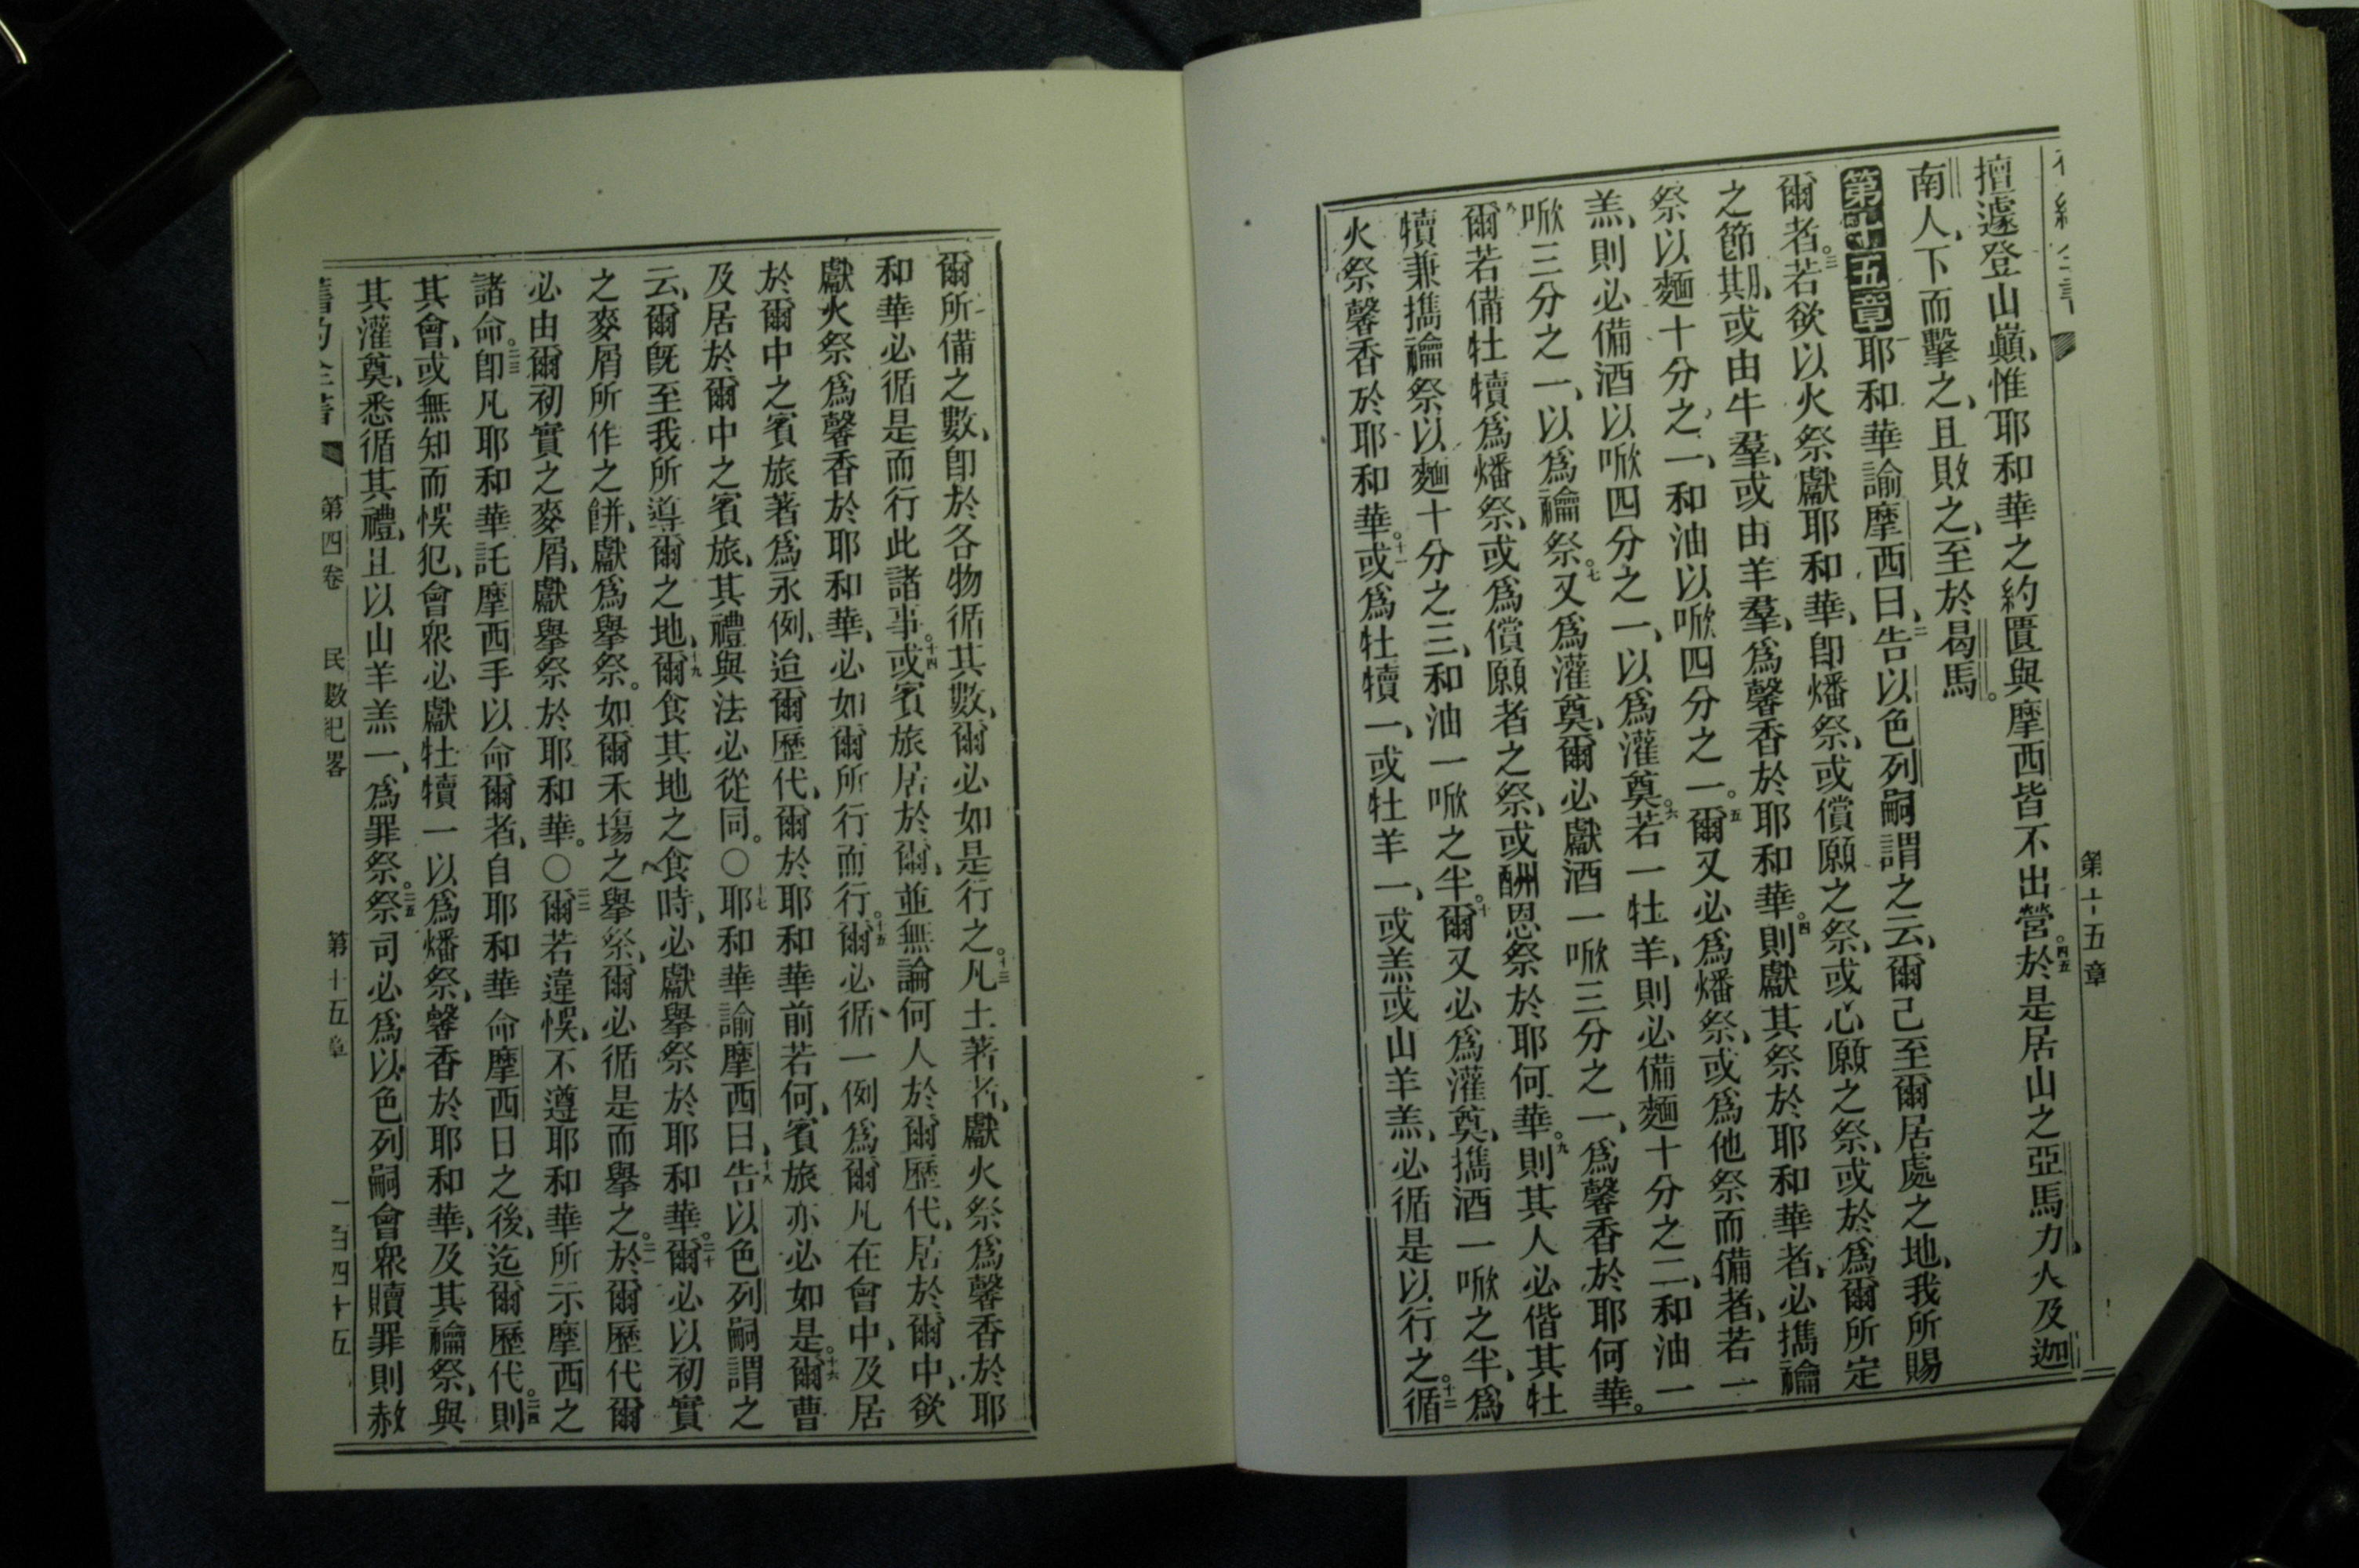 第十五章
擅遽登山巔、惟耶和華之約匱與摩西皆不出營。四五於是居山之亞馬力、人及迦
南人、下而擊之、且敗之、至於曷馬。
第十五章 一耶和華諭摩西曰、二告以色列嗣謂之云、爾己至爾居處之地、我所賜
爾者。三若欲以火祭獻耶和華、卽燔祭、或償願之祭、或心願之祭、或於爲爾所定
之節期、或由牛羣、或由羊羣、爲馨香於耶和華。四則獻其祭於耶和華者、必攜禴
祭以麵十分之一、和油以㰸四分之一。五爾又必爲燔祭、或爲他祭而備者、若一
羔、則必備酒以㰸四分之一、以爲灌奠。六若一牡羊、則必備麵十分之二、和油一
㰸三分之一、以爲禴祭。七又爲灌奠、爾必獻酒一㰸三分之一、爲馨香於耶何華。
八爾若備牡犢爲燔祭、或爲償願者之祭、或酬恩祭於耶何華。九則其人必偕其牡
犢兼攜禴祭以麵十分之三、和油一㰸之半。十爾又必爲灌奠、攜酒一㰸之半、爲
火祭馨香於耶和華。十一或爲牡犢一、或牡羊一、或羔或山羊羔、必循是以行之。十二循
爾所備之數、卽於各物循其數、爾必如是行之。十三凡土著者、獻火祭爲馨香於耶
和華必循是而行此諸事。十四或賓旅居於爾、並無論何人於爾歷代、居於爾中、欲
獻火祭爲馨香於耶和華、必如爾所行而行。十五爾必循一例爲爾凡在會中、及居
於爾中之賓旅著爲永例、迨爾歷代、爾於耶和華前若何、賓旅亦必如是。十六爾曹
及居於爾中之賓旅、其禮與法必從同。〇十七耶和華諭摩西曰、十八告以色列嗣謂之
云、爾旣至我所導爾之地、十九爾食其地之食時、必獻擧祭於耶和華。二十爾必以初實
之麥屑所作之餅、獻爲擧祭。如爾禾塲之擧祭、爾必循是而擧之。二一於爾歷代爾
必由爾初實之麥屑、獻擧祭於耶和華。〇二二爾若違悞、不遵耶和華所示摩西之
諸命。二三卽凡耶和華託摩西手以命爾者、自耶和華命摩西日之後、迄爾歷代。二四則
其會、或無知而悞犯、會衆必獻牡犢一以爲燔祭、馨香於耶和華、及其禴祭、與
其灌奠、悉循其禮、且以山羊羔一、爲罪祭。二五祭司必爲以色列嗣會衆贖罪則赦
舊約全書 第四卷 民數紀畧 第十五章 一百四十五